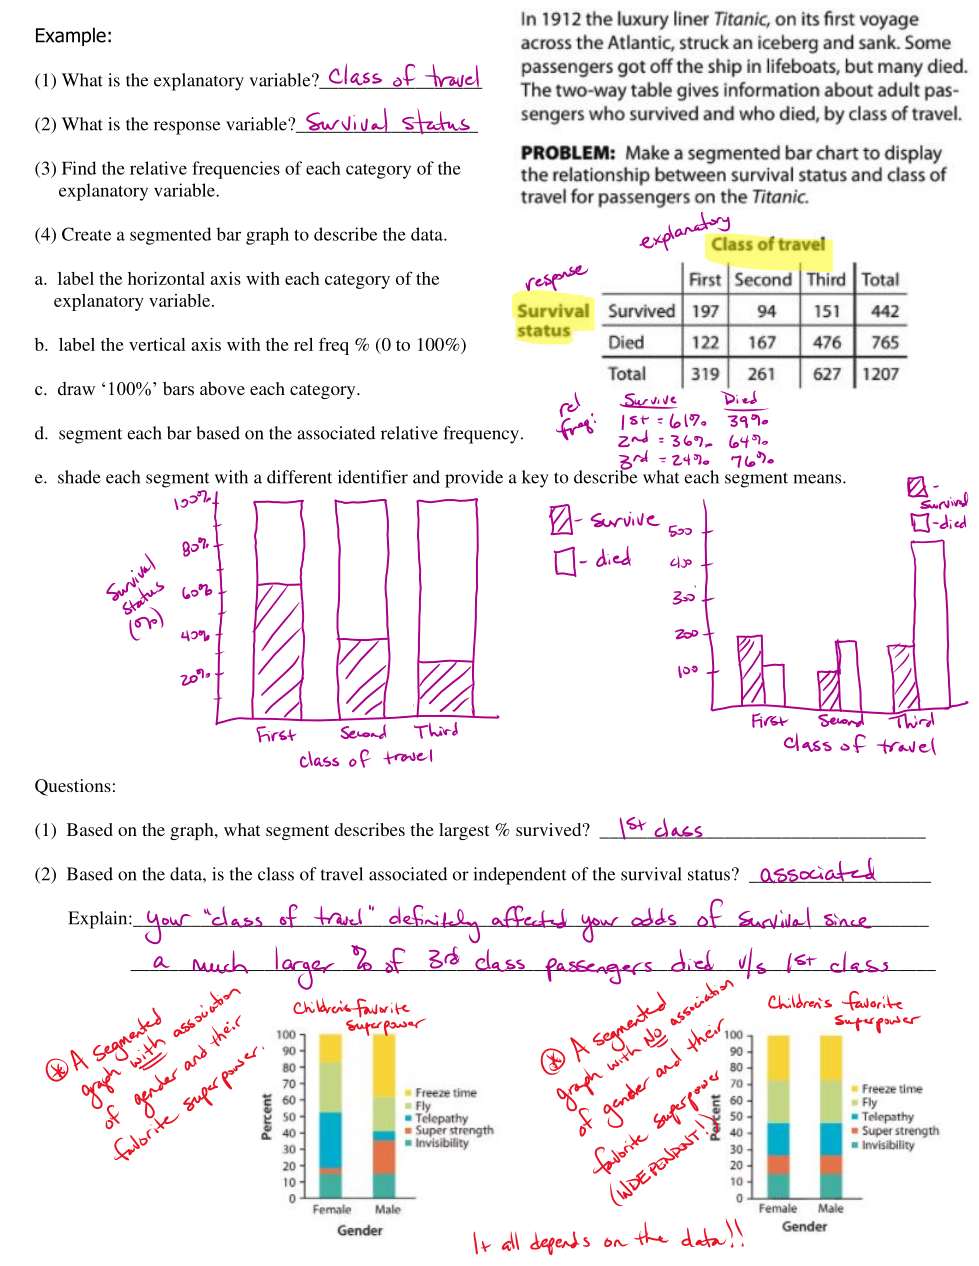 Example:
(1) What is the explanatory variable? Class of travel
(2) What is the response variable? Survival status
(3) Find the relative frequencies of each category of the
explanatory variable.
(4) Create a segmented bar graph to describe the data.
a. label the horizontal axis with each category of the
explanatory variable.
b. label the vertical axis with the rel freq % (0 to 100%)
c. draw ‘100%’ bars above each category.
d. segment each bar based on the associated relative frequency.
e. shade each segment with a different identifier and provide a key to describe what each segment means.
In 1912 the luxury liner Titanic, on its first voyage
across the Atlantic, struck an iceberg and sank. Some
passengers got off the ship in lifeboats, but many died.
The two-way table gives information about adult pas-
sengers who survived and who died, by class of travel.
PROBLEM: Make a segmented bar chart to display
the relationship between survival status and class of
travel for passengers on the Titanic.
explanatory
Class of travel
response
First Second Third Total
Survival status
Survived 197 94 151 442
Died 122 167 476 765
Total 319 261 627 1207
rel freq:
Survive Died
1st = 61% 39%
2nd = 36% 64%
3rd = 24% 76%
100%
80%
60%
40%
20%
Survival
Status
(%)
First Second Third
class of travel
- survive
- died
- Survived
- died
500
400
300
200
100
First Second Third
class of travel
Questions:
(1) Based on the graph, what segment describes the largest % survived? 1st class
(2) Based on the data, is the class of travel associated or independent of the survival status? associated
Explain: your "class of travel" definitely affected your odds of survival since
a much larger % of 3rd class passengers died v/s 1st class
A segmented
graph with association
of gender and their
favorite superpower.
Children's favorite
superpower
100
90
80
70
60
50
40
30
20
10
0
Percent
Freeze time
Fly
Telepathy
Super strength
Invisibility
Female Male
Gender
A segmented
graph with NO association
of gender and their
favorite superpower
(INDEPENDENT!)
Children's favorite
superpower
100
90
80
70
60
50
40
30
20
10
0
Percent
Freeze time
Fly
Telepathy
Super strength
Invisibility
Female Male
Gender
It all depends on the data!!